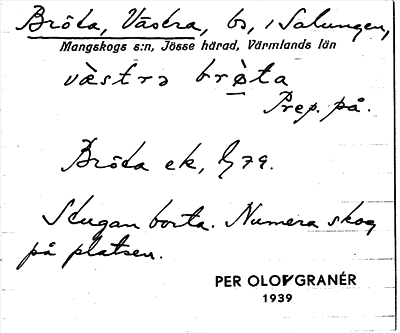 Bråta, Västra, bs, i Salungen,
Mangskogs s:n, Jösse härad, Värmlands län
västrə brøta
Prep. på.
Bråta ek, G 79.
Stugan borta. Numera skog
på platsen.
PER OLOF GRANÉR
1939